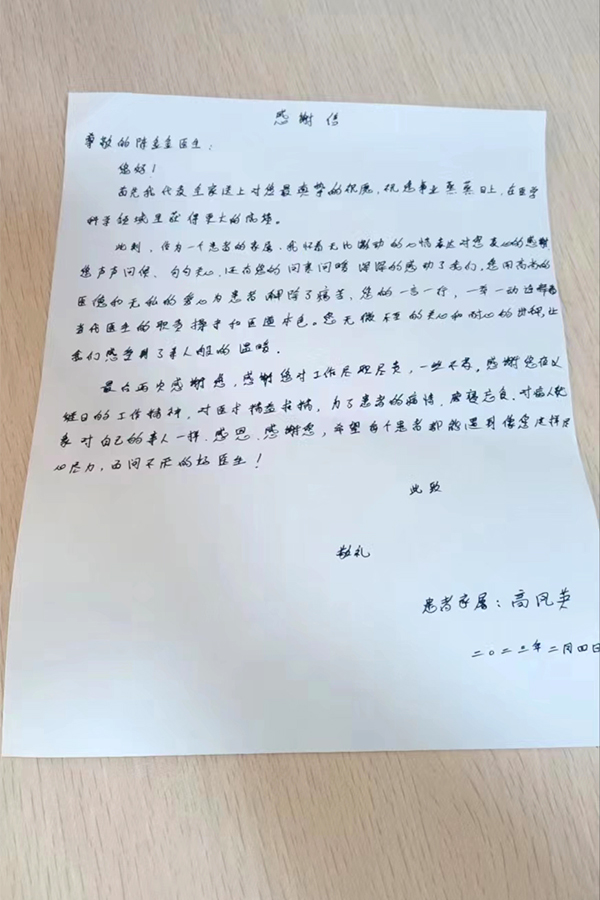 感谢信
尊敬的陈孟孟医生:
您好!
首先我代表全家送上对您最真挚的祝愿,祝您事业蒸蒸日上,在医学
科学领域里获得更大的成绩。
此刻,作为一个患者的家属,我怀着无比激动的心情表达对您衷心的感谢
您声声问候、句句关心,还有您的问寒问暖 深深的感动了我们。您用高尚的
医德和无私的爱心为患者解除了痛苦,您的一言一行,一举一动诠释着
当代医生的职责操守和医道本色。您无微不至的关心和耐心的,让
我们感受到了亲人般的温暖。
最后再次感谢您,感谢您对工作尽职尽责,一丝不苟。感谢您夜以
继日的工作精神,对医术精益求精,为了患者的病情,废寝忘食,对病人就
象对自己的亲人一样、感恩、感谢您,希望每个患者都能遇到像您这样尽
心尽力,百问不厌的好医生!
此致
敬礼
患者家属:高凤英
二〇二三年二月四日